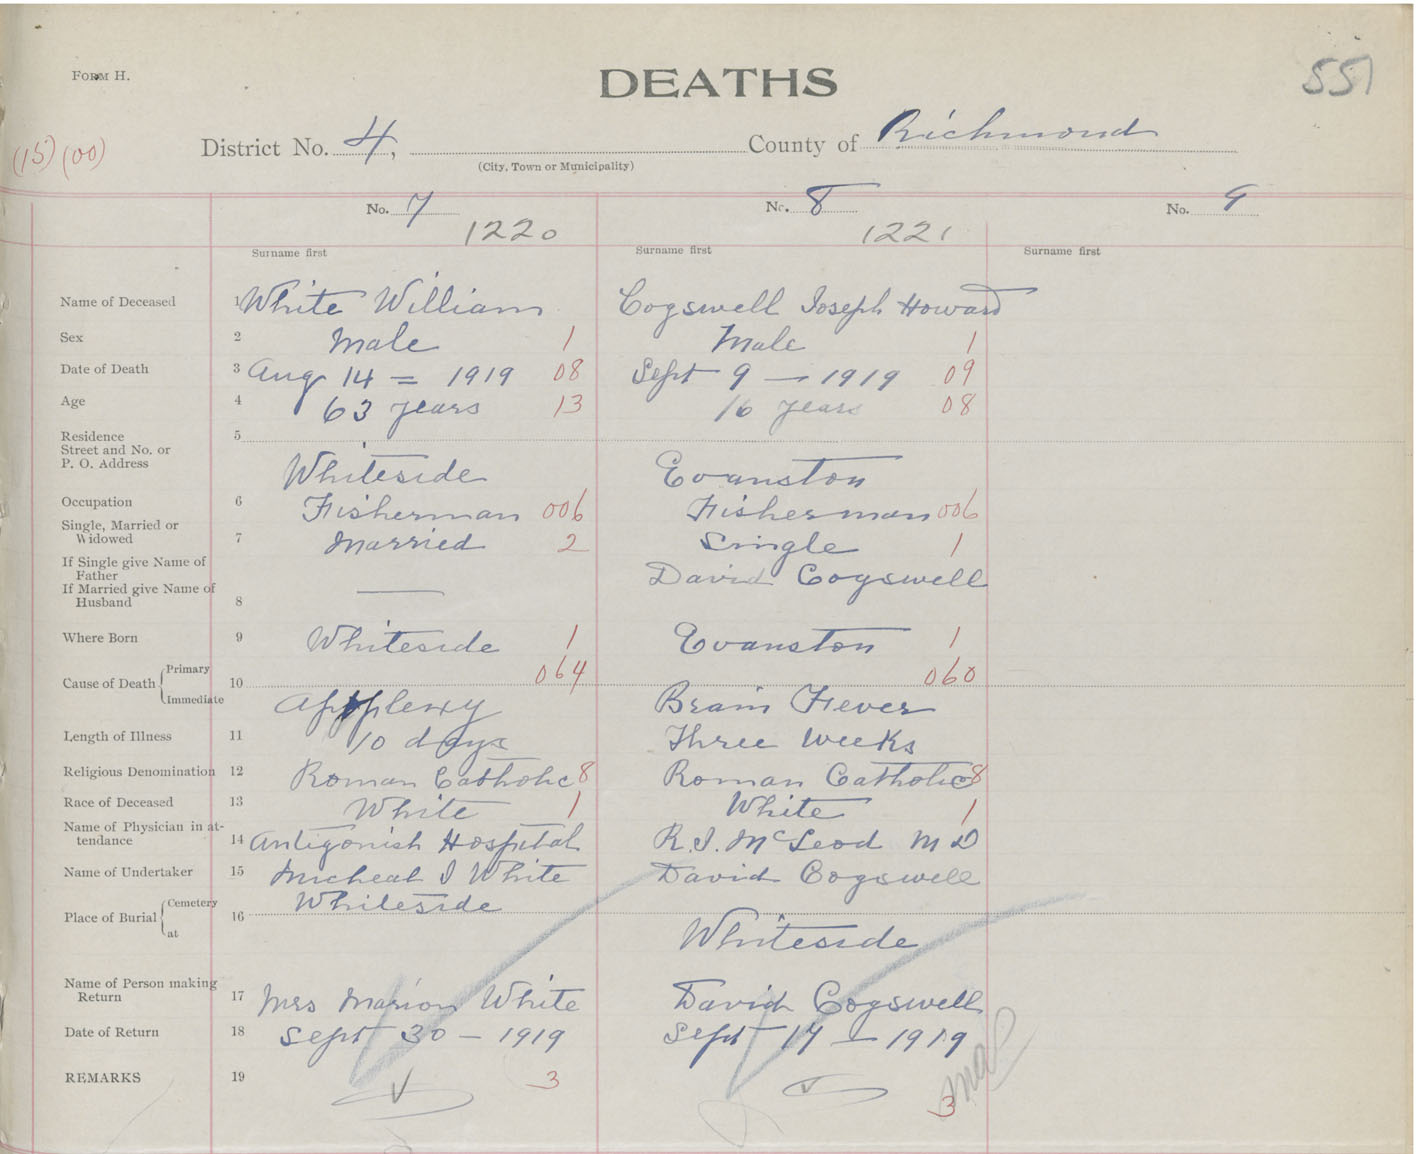 FORM H.
DEATHS
551
(15) (00)
District No. 4,
County of Richmond
(City, Town or Municipality)
No. 7
No. 8
No. 9
1220
1221
Surname first
Surname first
Surname first
Name of Deceased 1 White William Cogswell Joseph Howard
Sex 2 Male 1 Male 1
Date of Death 3 Aug 14 = 1919 08 Sept 9 — 1919 09
Age 4 63 years 13 16 years 08
Residence 5
Street and No. or
P. O. Address
Whiteside Evanston
Occupation 6 Fisherman 006 Fisherman 006
Single, Married or
Widowed 7 Married 2 Single 1
If Single give Name of
Father David Cogswell
If Married give Name of
Husband 8 —
Where Born 9 Whiteside 1 Evanston 1
Cause of Death { Primary 10 064 060
Immediate Appplexy Brain Fever
Length of Illness 11 10 days Three Weeks
Religious Denomination 12 Roman Catholic 8 Roman Catholic 8
Race of Deceased 13 White 1 White 1
Name of Physician in at-
tendance 14 Antigonish Hospital R. J. McLeod M D
Name of Undertaker 15 Micheal J White David Cogswell
Place of Burial { Cemetery 16 Whiteside
at Whiteside
Name of Person making
Return 17 Mrs Marion White David Cogswell
Date of Return 18 Sept 30 — 1919 Sept 17 — 1919
REMARKS 19 3 3